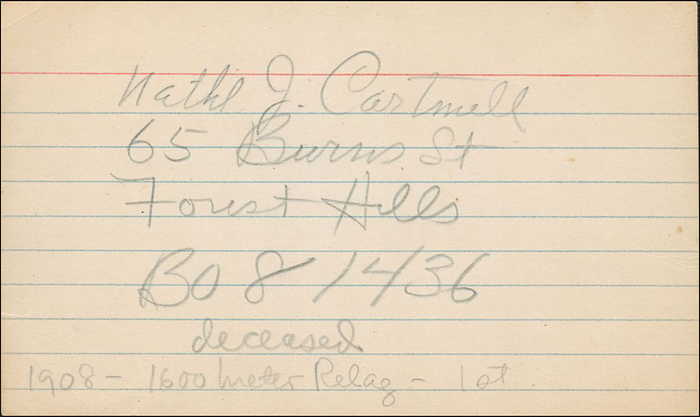 Nathl J. Cartmell
65 Burns St
Forest Hills
BO 8 1436
deceased
1908 - 1600 meter Relay - 1st